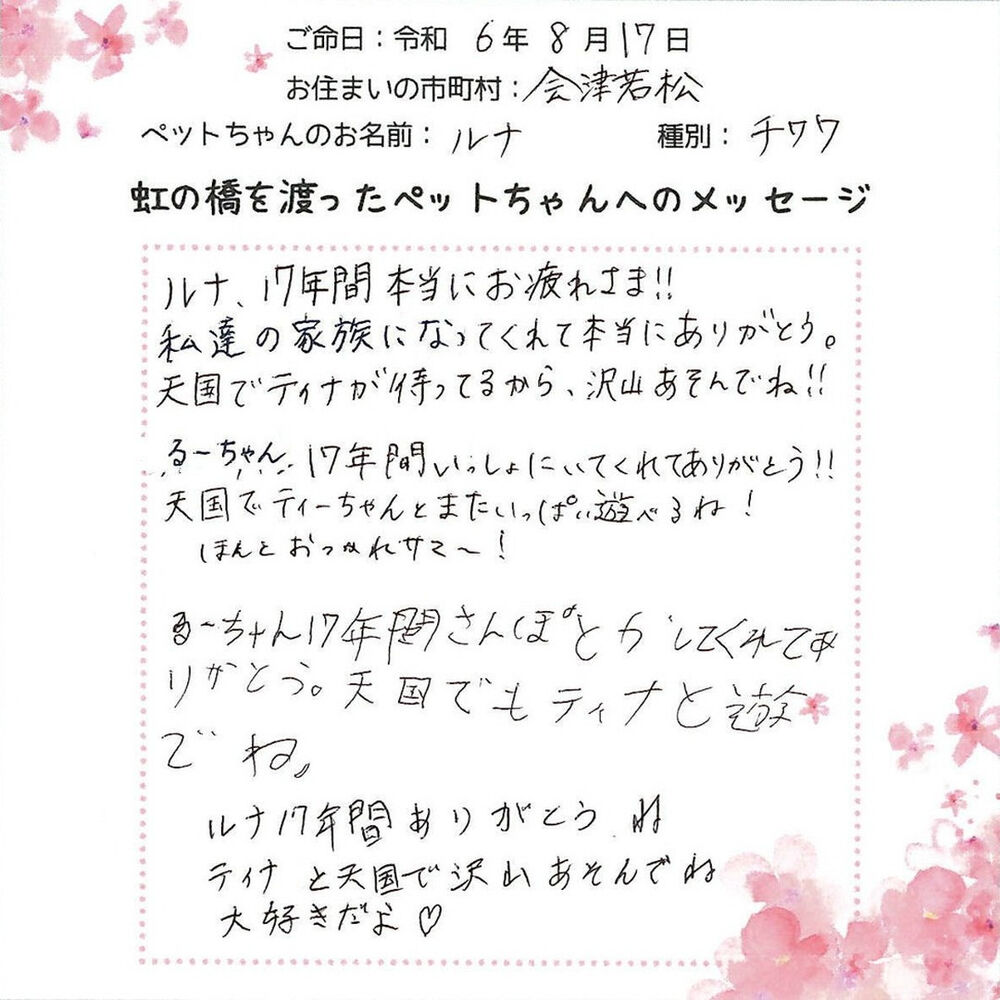 ご命日：令和 6年 8月17日
お住まいの市町村：会津若松
ペットちゃんのお名前：ルナ 種別：チワワ
虹の橋を渡ったペットちゃんへのメッセージ
ルナ、17年間本当にお疲れさま!!
私達の家族になってくれて本当にありがとう。
天国でティナが待ってるから、沢山あそんでね!!
るーちゃん 17年間いっしょにいてくれてありがとう!!
天国でティーちゃんとまたいっぱい遊べるね!
ほんとおつかれサマ～!
るーちゃん17年間さんぽとかしてくれてあ
りがとう。天国でもティナと遊ん
でね。
ルナ17年間ありがとうね
ティナと天国で沢山あそんでね
大好きだよ♡